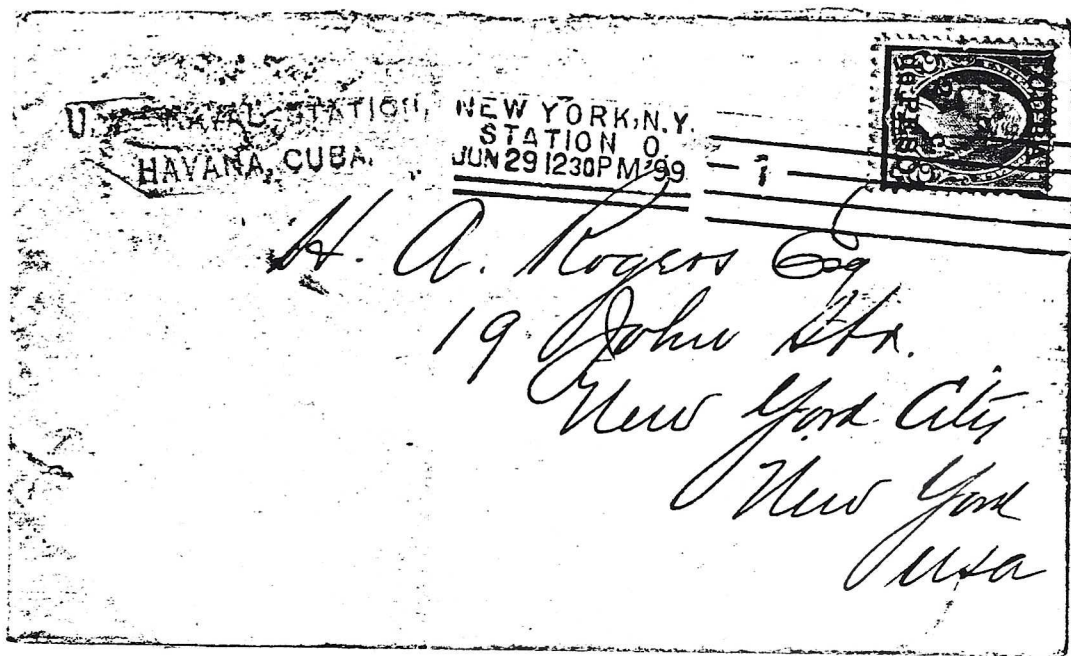 U. S. NAVAL STATION,
HAVANA, CUBA.
NEW YORK, N.Y.
STATION O
JUN 29 1230PM '99
1
CUBA
2 c. de PESO
H. A. Rogers Esq
19 John Str.
New York City
New York
USA